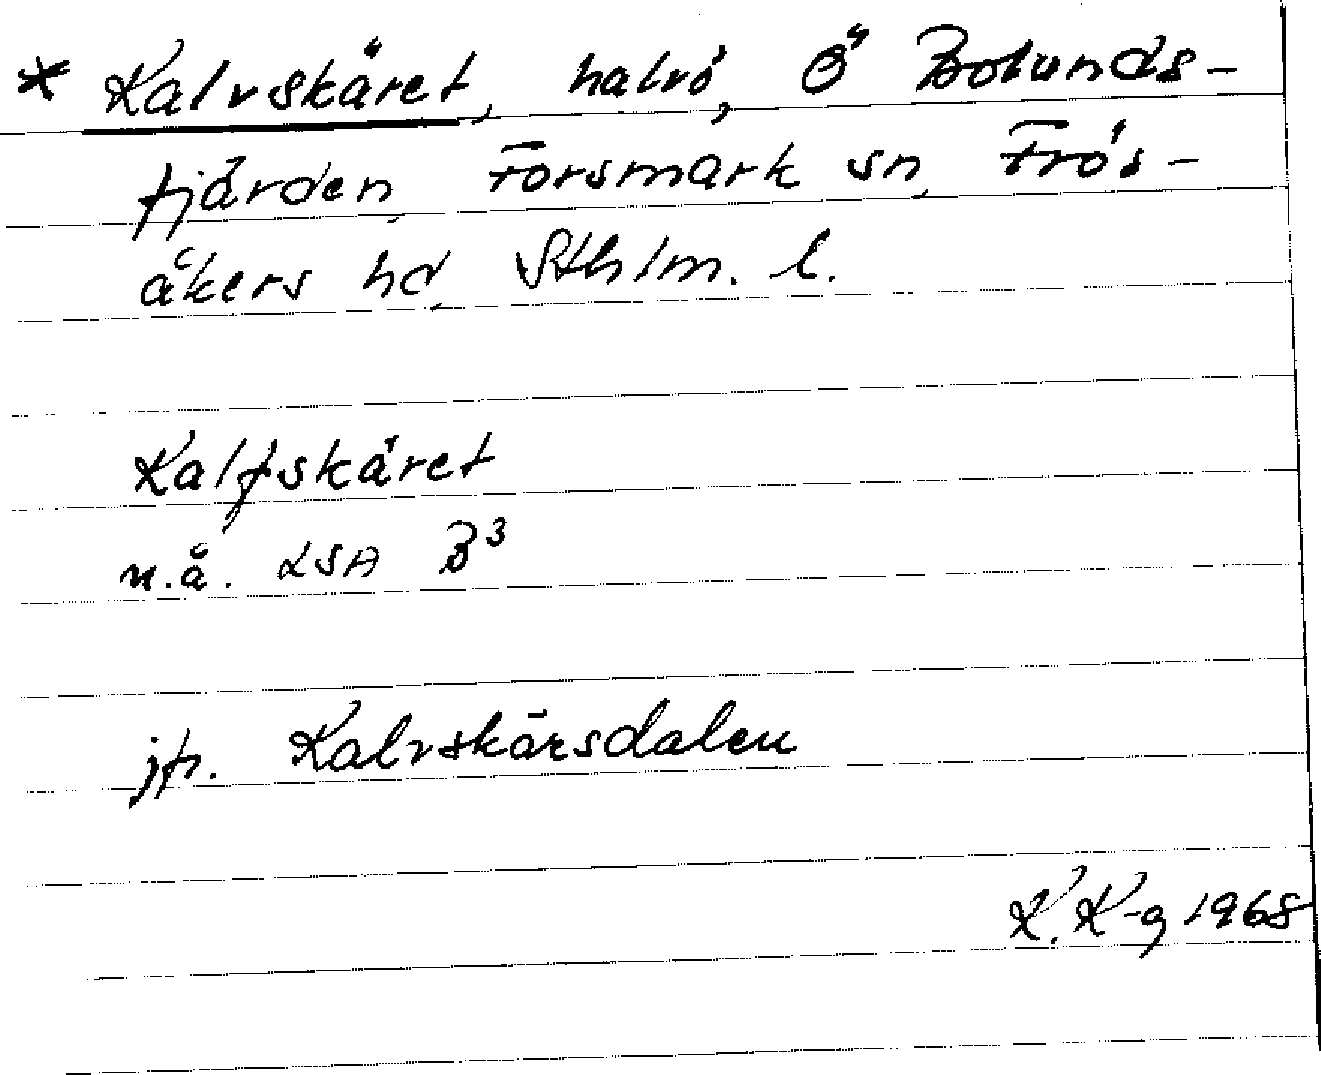 * Kalvskäret, halvö, Ö Bolunds-
fjärden, Forsmark sn, Frös-
åkers hd, Sthlm. l.
Kalfskäret
n.å. LSA B³
jfr. Kalvskärsdalen
K. K-g 1968